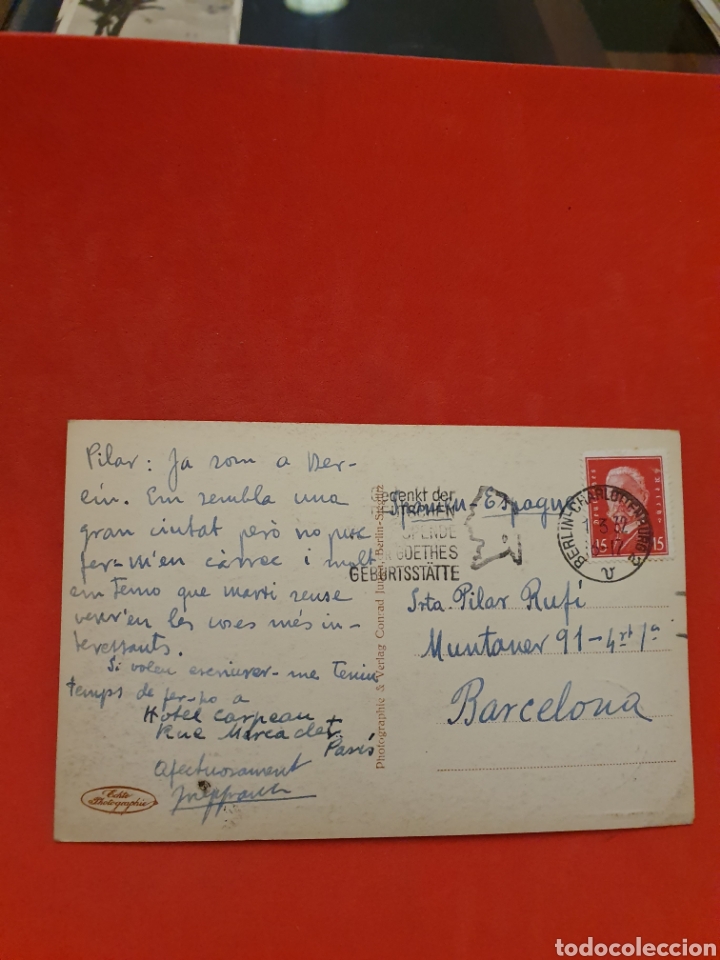 Pilar: Ja som a Ber-
lín. Em sembla una
gran ciutat però no puc
fer-m'en càrrec i molt
em temo que marxi sense
veure'n les coses més in-
teressants.
Si voleu escriure-me teniu
temps de fer-ho a
Hotel Carpeau
Rue Marcadet
París
Afectuosament
Echte
Photographie
Photographie & Verlag Conrad Junga, Berlin-Steglitz
Gedenkt der
SPENDE
GOETHES
GEBURTSSTÄTTE
Spanien-Espagne
BERLIN-CHARLOTTENBURG 2
1.3.32
17
v
DEUTSCHES REICH
15 15
Srta. Pilar Rufí
Muntaner 91-4rt 1a
Barcelona
todocoleccion